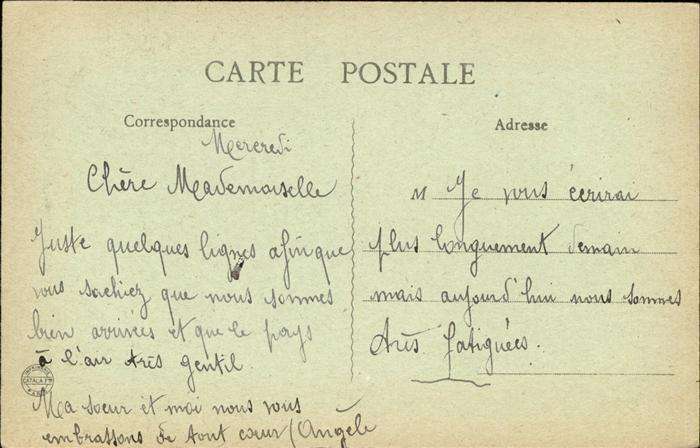 CARTE POSTALE
Correspondance
Mercredi
Chère Mademoiselle
Juste quelques lignes afin que
vous sachiez que nous sommes
bien arrivées et que le pays
à l'air très gentil.
Ma sœur et moi nous vous
embrassons de tout cœur (Angèle
Adresse
M Je vous écrirai
plus longuement demain
mais aujourd'hui nous sommes
très fatiguées.